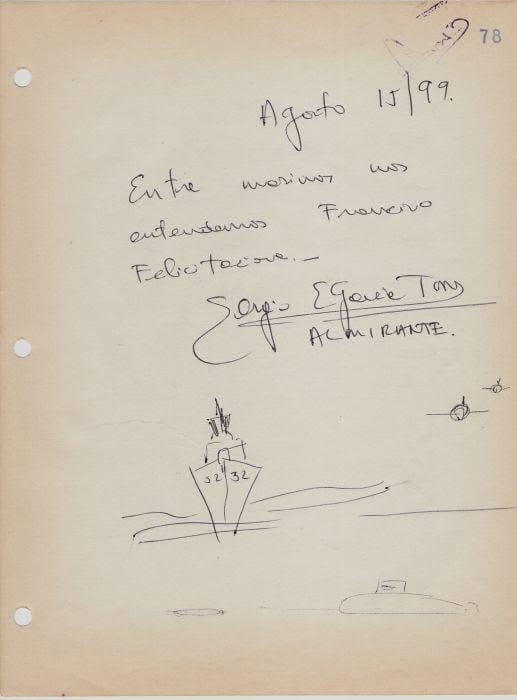 78
Agosto 15/99.
Entre marinos nos
entendemos Francisco
Felicitaciones.—
Sergio E Garcia Torres
ALMIRANTE.
32 32